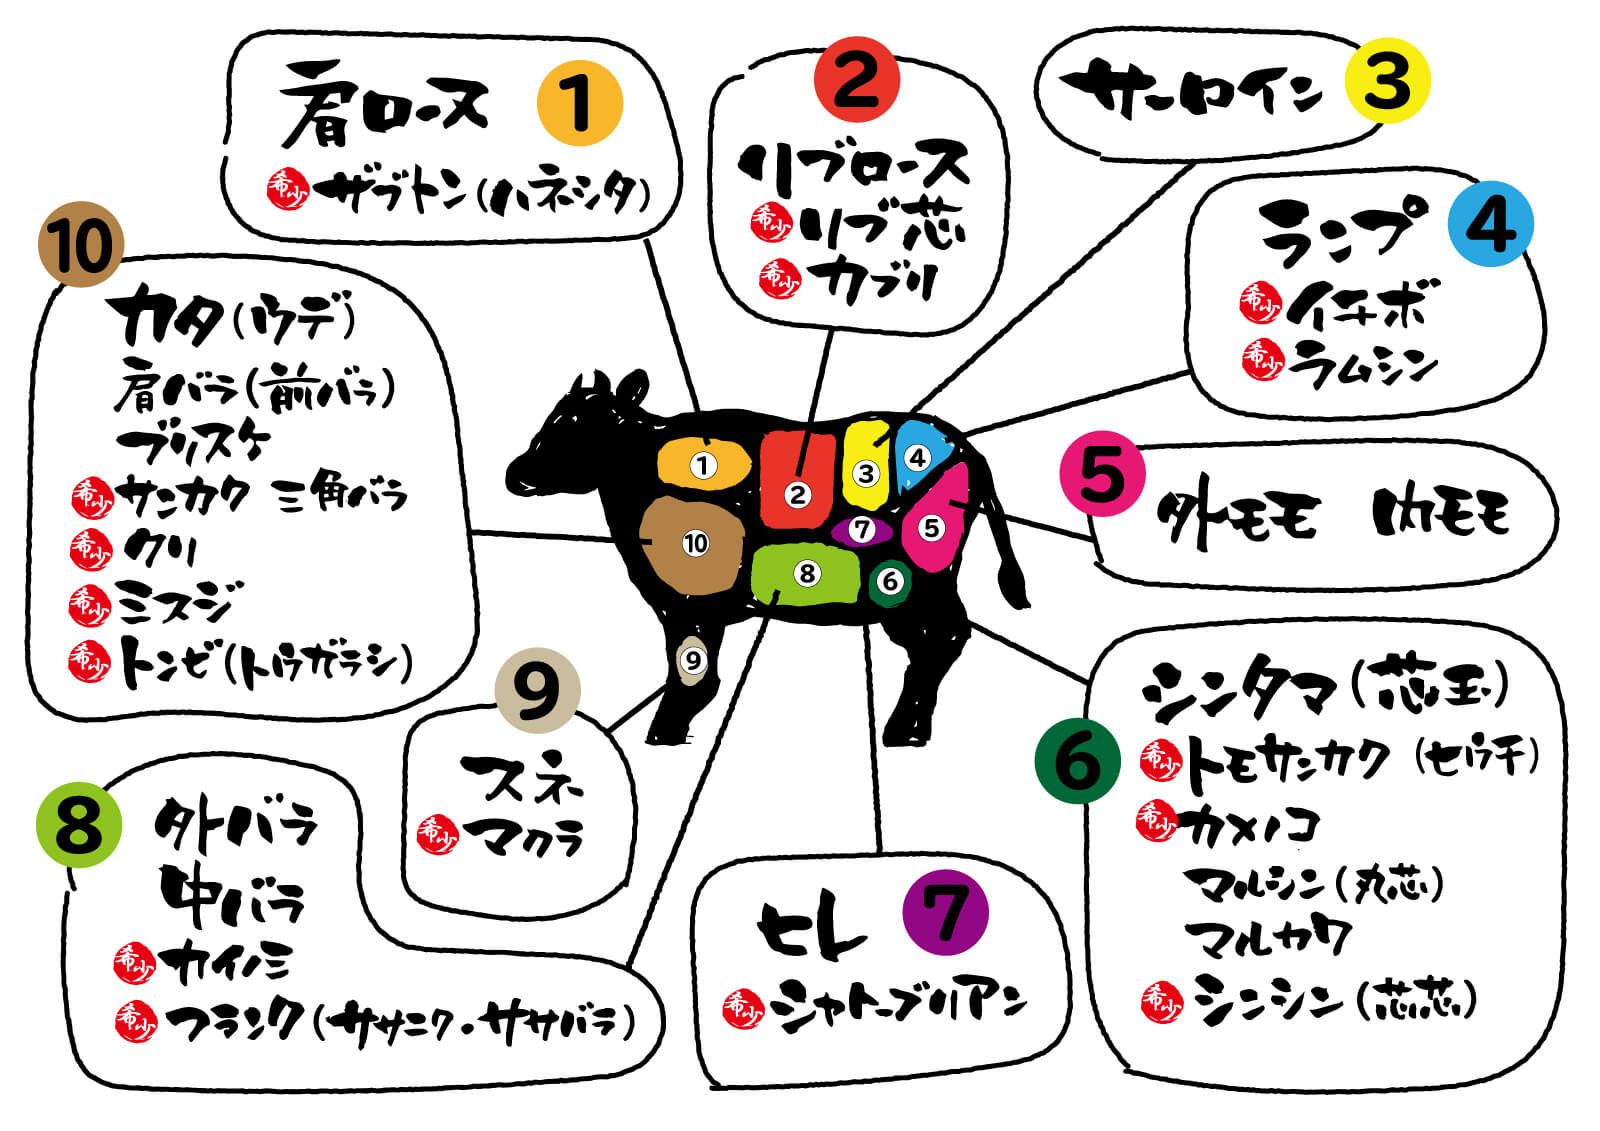 肩ロース 1
希少 ザブトン(ハネシタ)
2
リブロース
希少 リブ芯
希少 カブリ
サーロイン 3
ランプ 4
希少 イチボ
希少 ラムシン
5
外モモ 内モモ
6
シンタマ(芯玉)
希少 トモサンカク (ヒウチ)
希少 カメノコ
マルシン(丸芯)
マルカワ
希少 シンシン(芯芯)
ヒレ 7
希少 シャトーブリアン
8
外バラ
中バラ
希少 カイノミ
希少 フランク(ササニク・ササバラ)
9
スネ
希少 マクラ
10
カタ(ウデ)
肩バラ(前バラ)
ブリスケ
希少 サンカク 三角バラ
希少 クリ
希少 ミスジ
希少 トンビ(トウガラシ)
1
2
3
4
5
6
7
8
9
10